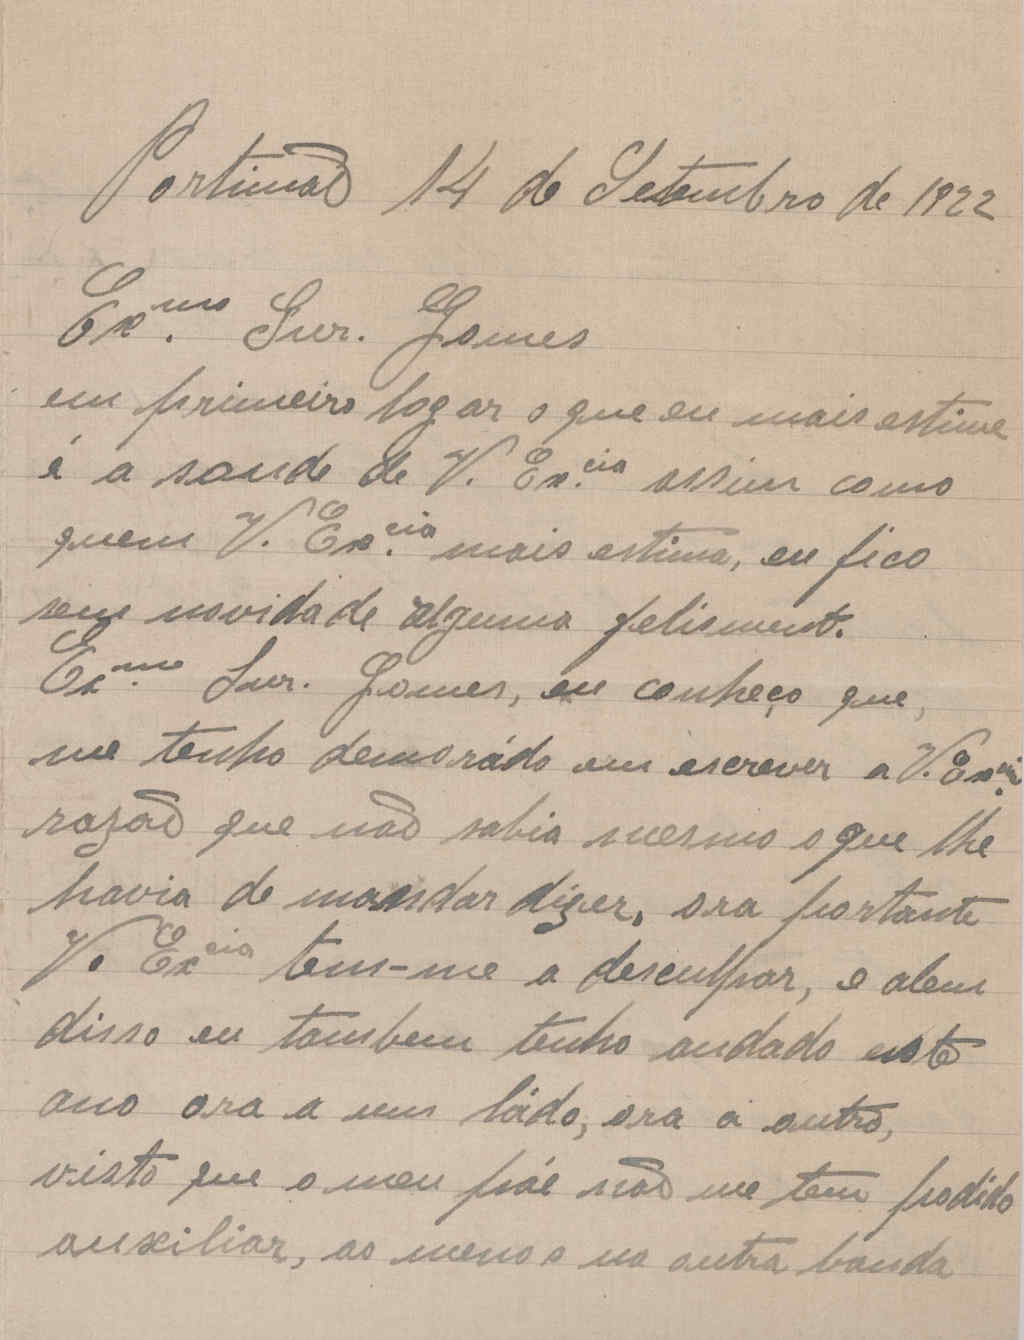 Portimão 14 de Setembro de 1922
Ex.mo Snr. Gomes
em primeiro logar o que eu mais estime
é a saude de V. Ex.cia assim como
quem V. Ex.cia mais estima, eu fico
sem novidade alguma felisment.
Ex.mo Snr. Gomes, eu conheço que,
me tenho demorádo em escrever a V. Ex.cia
razão que não sabia mesmo o que lhe
havia de mandar dizer, ora portante
V. Excia tem-me a desculpar, e alem
disso eu tambem tenho andado este
ano ora a um ládo, ora a outro,
visto que o meu páe não me tem podido
auxiliar, ao menos na outra banda